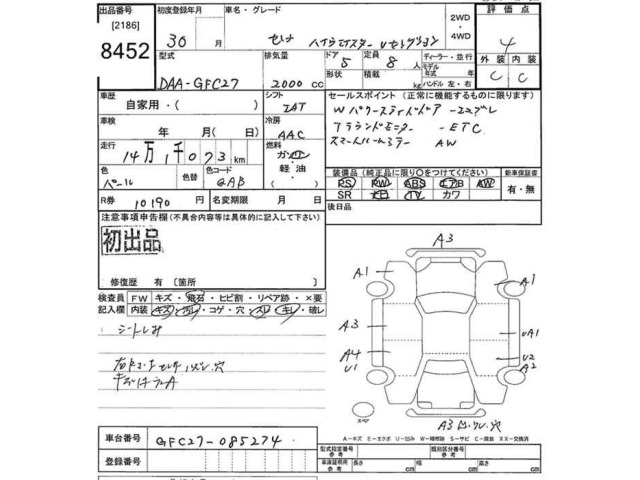 出品番号 初度登録年月 車名・グレード 2WD・4WD 評価点
[2186]
8452
30 月 セレナ ハイウェイスター Vセレクション 4
型式 排気量 ドア 定員 ディーラー・並行 外装 内装
DAA-GFC27 2000 cc 5 8人 モデル年式 年 C C
形状 積載 kg ハンドル 左・右
車歴 シフト セールスポイント (正常に機能するものに限ります)
自家用・( ) IAT Wパワースライドドア
車検 冷房 アラウンドモニター - ETC
年 月(日) AAC スマートルームミラー AW
走行 燃料
14万1千073km ガソリン
軽油・
色 色替 色コード 装備品 (純正品に限り○をつけてください) 新車保証書
パール QAB PS PW ABS エアB AW 有・無
SR 革 TV カワ
R券 10190 円 名変期限 月 日 後日品
注意事項申告欄(不具合内容等は具体的に記入して下さい)
初出品
修復歴 有〔箇所 〕
検査員記入欄 FW キズ・飛石・ヒビ割・リペア跡・×要
内装 キズ・汚レ・コゲ・穴・スレ・キレ・破レ
シートしみ
A3
A1 A1
A3 UA1
A4 U2
U1 A2
スペア
A3 凹. 穴
A-キズ E-エクボ U-凹み W-補修跡 S-サビ C-腐食 XX-交換済
車台番号 GFC27-085274
登録番号
型式指定番号 類別区分番号
車庫証明用参考 長さ cm 幅 cm 高さ cm